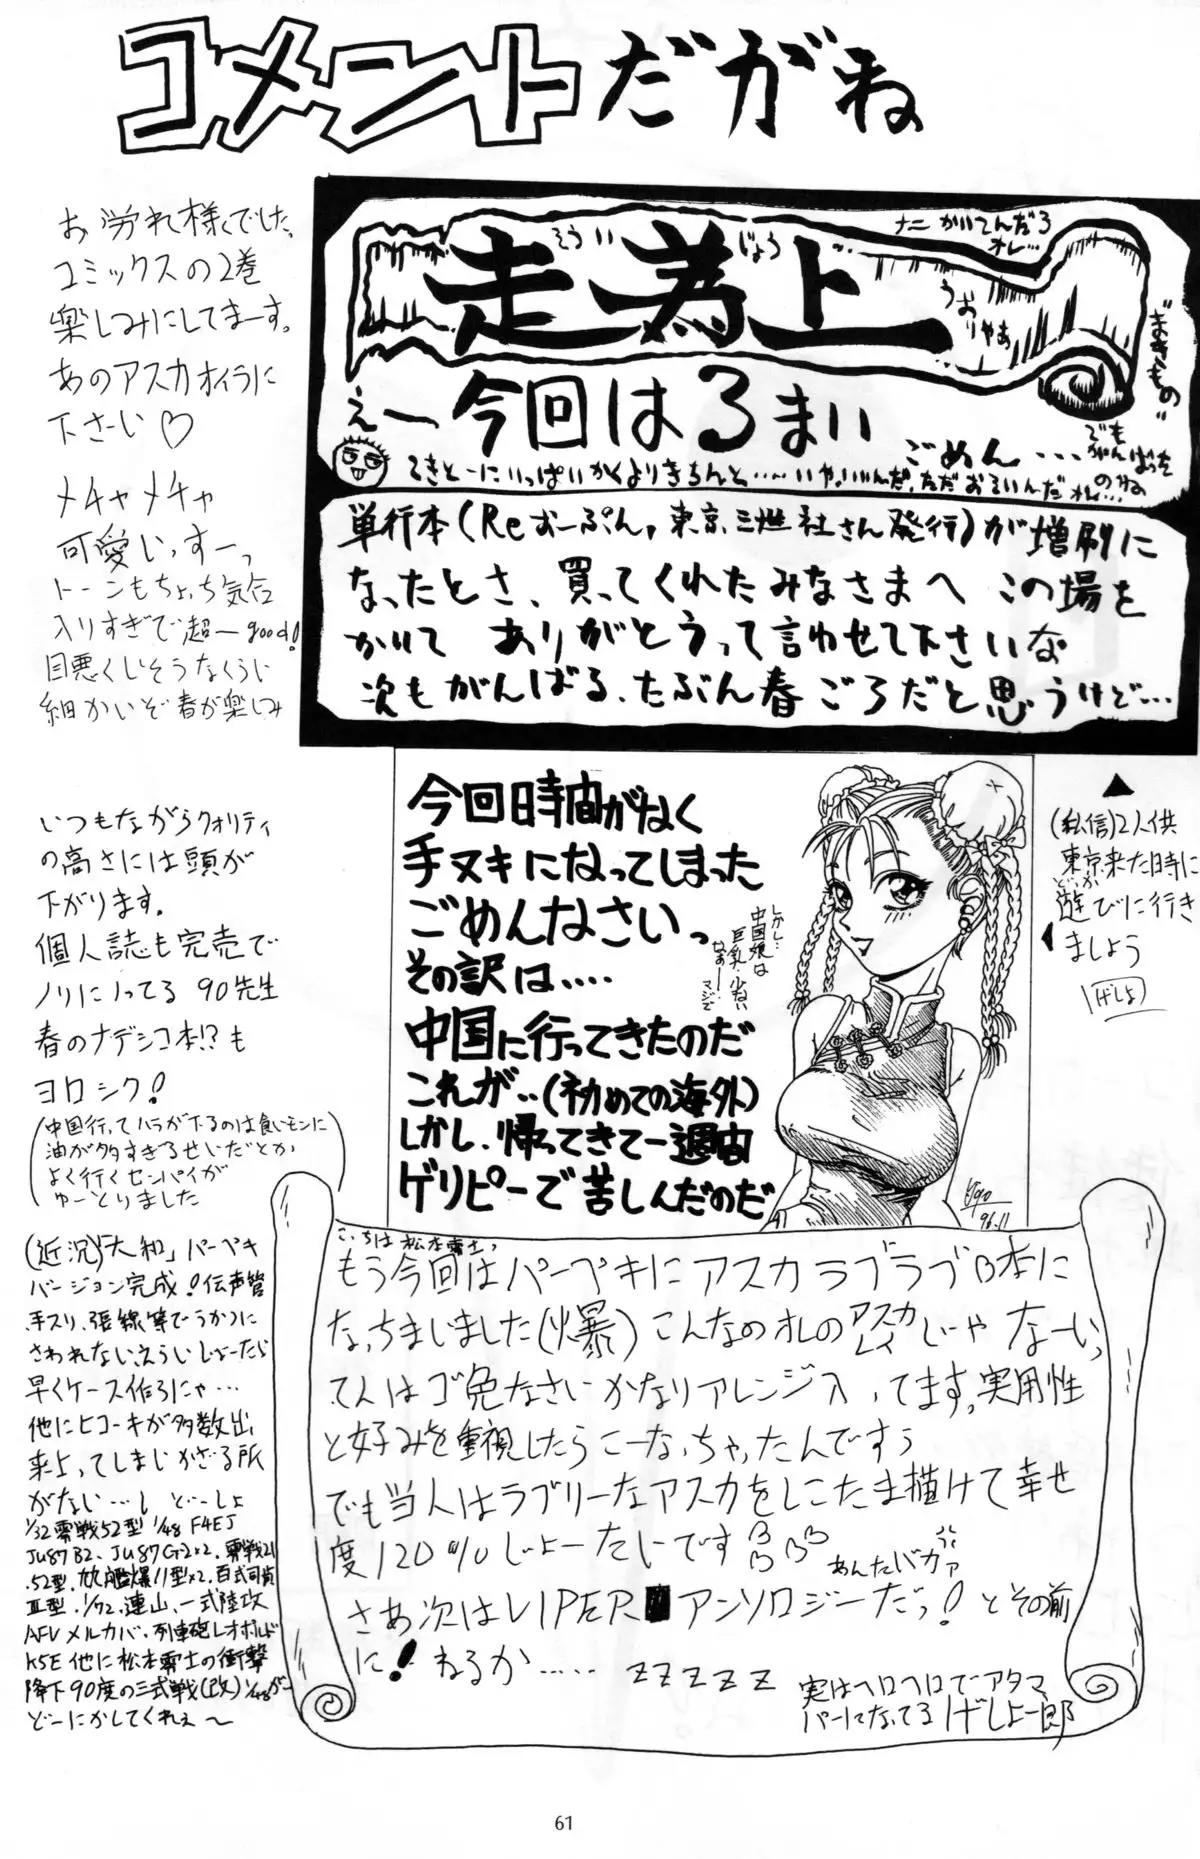 コメントだがね
お労れ様でした。
コミックスの2巻
楽しみにしてまーす。
あのアスカオイラに
下さーい♡
メチャメチャ
可愛いっすーっ
トーンもちょっち気合
入りすぎで超ーgood!
目悪くしそうなくらい
細かいぞ春が楽しみ
走為上
そうい じょう
ナニかいてんだろ
オレ…
うおりゃあ
"まきもの"
でも
がんばった
のね
えー今回はるまい
ごめん…
てきとーにいっぱいかくよりきちんと……いや、いいんだ、ただおそいんだオレ…
単行本(Reむーぷん,東京三世社さん発行)が増刷に
なったとさ、買ってくれたみなさまへ この場を
かりて ありがとうって言わせて下さいな
次もがんばる、たぶん春ごろだと思うけど…
いつもながらクオリティ
の高さには頭が
下がります。
個人誌も完売で
ノリにノってる 90先生
春のナデシコ本!?も
ヨロシク!
(中国行ってハラが下るのは食いモンに
油が多すぎるせいだとか
よく行くセンパイが
ゆーとりました)
今回時間がなく
手ヌキになってしまった
ごめんなさいっ
その訳は‥‥
中国に行ってきたのだ
これが‥(初めての海外)
しかし、帰ってきて一週間
ゲリピーで苦しんだのだ
しかし…
中国娘は
巨乳少ない
なぁー…マジで
96.11
▲
(私信)2人供
東京来た日時に
どっか
遊びに行き
ましょう
げしょ
(近況)「大和」パーペキ
バージョン完成!伝声管
手スリ、張線等でうかつに
さわれない、えらいしょーたら
早くケース作ろにゃ…
他にヒコーキが多数出
来上ってしまいかざる所
がない…し どーしょ
1/32零戦52型 1/48 F4EJ
JU87B2、JU87G2×2、零戦21
.52型、九九艦爆11型×2、百式司偵
Ⅲ型、1/72、連山、一式陸攻
AFVメルカバ、列車砲レオポルド
K5E他に松本零士の衝撃
降下90度の三式戦(改)1/48がー
どーにかしてくれぇ〜
こっちは松本零士っ
もう今回はパーペキにアスカラブラブB本に
なっちまいました(爆)こんなのオレのアスカ
レイ
じゃ なーいっ
て人はゴ免なさいかなりアレンジ入ってます。実用性
と好みを重視したらこーなっちゃったんですぅ
でも当人はラブリーなアスカをしこたま描けて幸せ
度120%じょーたいです
あんたバカぁ
さあ次はVIPERアンソロジーだっ!とその前
に!ねるか…… zzzzz
実はヘロヘロでアタマ
パーになってる げしょ一郎
61